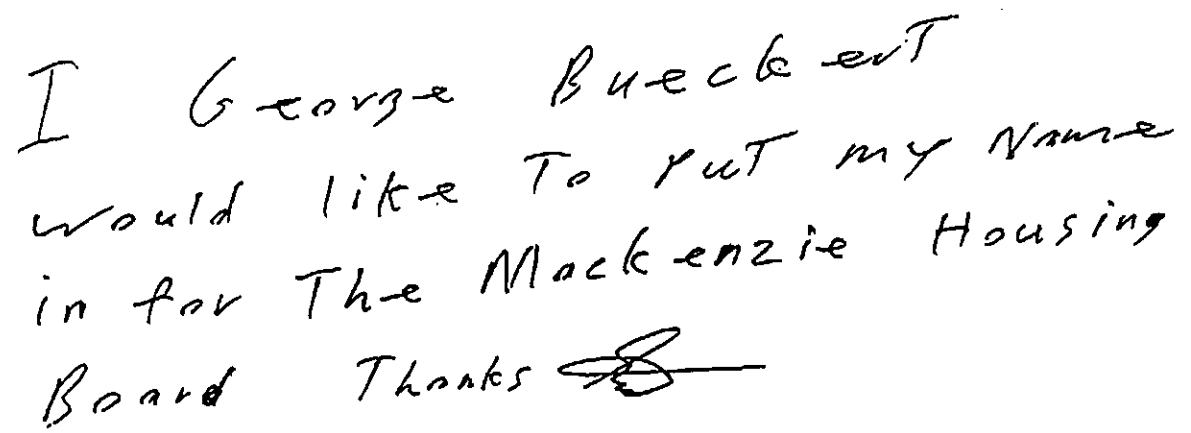 I George Bueckert
would like To PuT my Name
in for The Mackenzie Housing
Board Thanks